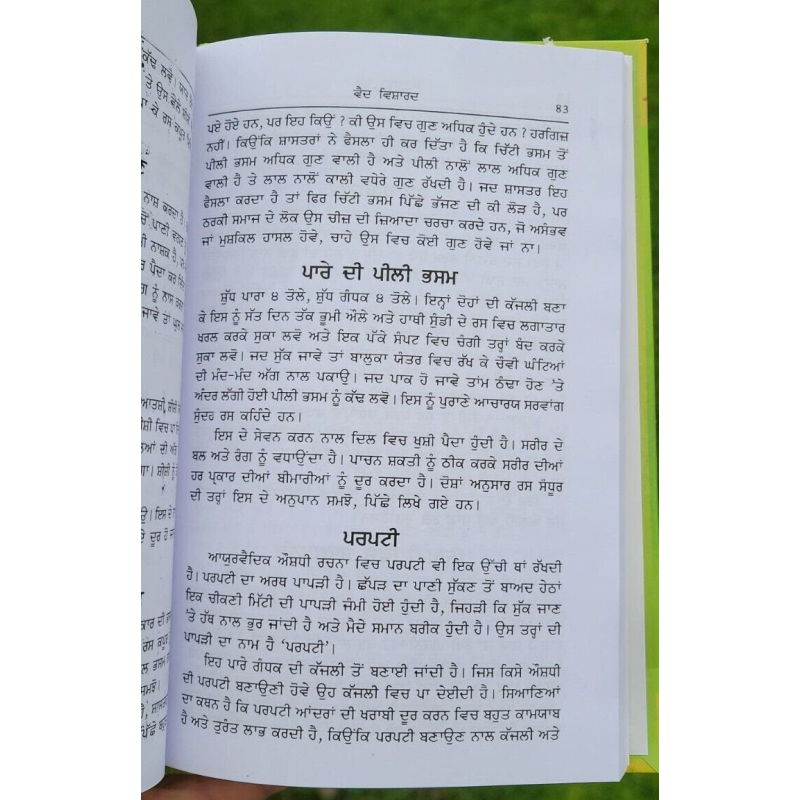 ਕੱਢ ਲਵੋ।
ਤੇ ਉਸ ਵੇਲੇ
ਕੇ ਰਸ ਕਪੂਰ
ਨਾਸ਼ ਕਰਦਾ ਹੈ।
ਨਾਸ਼ਕ ਹੈ,
ਪੈਦਾ ਕਰ
ਨੂੰ ਨਾਸ਼
ਜਾਵੇ ਤਾਂ
ਆਤਸ਼ੀ ਸ਼ੀਸ਼ੀ
ਵਿਚ ਪਾ
ਦੀ ਅੱਗ
ਗਾ। ਸ਼ੀਸ਼ੀ ਨੂੰ
ਇਸ ਦੇ
ਦੂਰ ਹੋ
ਕਾਰ ਦੀ
ਰਸ ਕਪੂਰ
ਲ ਭਸਮ
ਸਮਝੋ।
ਪਿੱਛੇ
ਵੈਦ ਵਿਸ਼ਾਰਦ
83
ਪਏ ਹੋਏ ਹਨ, ਪਰ ਇਹ ਕਿਉਂ ? ਕੀ ਉਸ ਵਿਚ ਗੁਣ ਅਧਿਕ ਹੁੰਦੇ ਹਨ ? ਹਰਗਿਜ਼
ਨਹੀਂ। ਕਿਉਂਕਿ ਸ਼ਾਸਤਰਾਂ ਨੇ ਫੈਸਲਾ ਹੀ ਕਰ ਦਿੱਤਾ ਹੈ ਕਿ ਚਿੱਟੀ ਭਸਮ ਤੋਂ
ਪੀਲੀ ਭਸਮ ਅਧਿਕ ਗੁਣ ਵਾਲੀ ਹੈ ਅਤੇ ਪੀਲੀ ਨਾਲੋਂ ਲਾਲ ਅਧਿਕ ਗੁਣ
ਵਾਲੀ ਹੈ ਤੇ ਲਾਲ ਨਾਲੋਂ ਕਾਲੀ ਵਧੇਰੇ ਗੁਣ ਰੱਖਦੀ ਹੈ। ਜਦ ਸ਼ਾਸਤਰ ਇਹ
ਫੈਸਲਾ ਕਰਦਾ ਹੈ ਤਾਂ ਫਿਰ ਚਿੱਟੀ ਭਸਮ ਪਿੱਛੇ ਭੱਜਣ ਦੀ ਕੀ ਲੋੜ ਹੈ, ਪਰ
ਠਰਕੀ ਸਮਾਜ ਦੇ ਲੋਕ ਉਸ ਚੀਜ਼ ਦੀ ਜ਼ਿਆਦਾ ਚਰਚਾ ਕਰਦੇ ਹਨ, ਜੋ ਅਸੰਭਵ
ਜਾਂ ਮੁਸ਼ਕਿਲ ਹਾਸਲ ਹੋਵੇ, ਚਾਹੇ ਉਸ ਵਿਚ ਕੋਈ ਗੁਣ ਹੋਵੇ ਜਾਂ ਨਾ।
ਪਾਰੇ ਦੀ ਪੀਲੀ ਭਸਮ
ਸ਼ੁੱਧ ਪਾਰਾ ੪ ਤੋਲੇ, ਸ਼ੁੱਧ ਗੰਧਕ ੪ ਤੋਲੇ। ਇਨ੍ਹਾਂ ਦੋਹਾਂ ਦੀ ਕੱਜਲੀ ਬਣਾ
ਕੇ ਇਸ ਨੂੰ ਸੱਤ ਦਿਨ ਤੱਕ ਭੂਮੀ ਔਲੇ ਅਤੇ ਹਾਥੀ ਸੁੰਡੀ ਦੇ ਰਸ ਵਿਚ ਲਗਾਤਾਰ
ਖਰਲ ਕਰਕੇ ਸੁਕਾ ਲਵੋ ਅਤੇ ਇਕ ਪੱਕੇ ਸੰਪਟ ਵਿਚ ਚੰਗੀ ਤਰ੍ਹਾਂ ਬੰਦ ਕਰਕੇ
ਸੁਕਾ ਲਵੋ। ਜਦ ਸੁੱਕ ਜਾਵੇ ਤਾਂ ਬਾਲੁਕਾ ਯੰਤਰ ਵਿਚ ਰੱਖ ਕੇ ਚੌਵੀ ਘੰਟਿਆਂ
ਦੀ ਮੰਦ-ਮੰਦ ਅੱਗ ਨਾਲ ਪਕਾਉ। ਜਦ ਪਾਕ ਹੋ ਜਾਵੇ ਤਾਂਮ ਠੰਢਾ ਹੋਣ ’ਤੇ
ਅੰਦਰ ਲੱਗੀ ਹੋਈ ਪੀਲੀ ਭਸਮ ਨੂੰ ਕੱਢ ਲਵੋ। ਇਸ ਨੂੰ ਪੁਰਾਣੇ ਆਚਾਰਯ ਸਰਵਾਂਗ
ਸੁੰਦਰ ਰਸ ਕਹਿੰਦੇ ਹਨ।
ਇਸ ਦੇ ਸੇਵਨ ਕਰਨ ਨਾਲ ਦਿਲ ਵਿਚ ਖੁਸ਼ੀ ਪੈਦਾ ਹੁੰਦੀ ਹੈ। ਸਰੀਰ ਦੇ
ਬਲ ਅਤੇ ਰੰਗ ਨੂੰ ਵਧਾਉਂਦਾ ਹੈ। ਪਾਚਨ ਸ਼ਕਤੀ ਨੂੰ ਠੀਕ ਕਰਕੇ ਸਰੀਰ ਦੀਆਂ
ਹਰ ਪ੍ਰਕਾਰ ਦੀਆਂ ਬੀਮਾਰੀਆਂ ਨੂੰ ਦੂਰ ਕਰਦਾ ਹੈ। ਦੋਸ਼ਾਂ ਅਨੁਸਾਰ ਰਸ ਸੰਧੂਰ
ਦੀ ਤਰ੍ਹਾਂ ਇਸ ਦੇ ਅਨੁਪਾਨ ਸਮਝੋ, ਪਿੱਛੇ ਲਿਖੇ ਗਏ ਹਨ।
ਪਰਪਟੀ
ਆਯੁਰਵੈਦਿਕ ਔਸ਼ਧੀ ਰਚਨਾ ਵਿਚ ਪਰਪਟੀ ਵੀ ਇਕ ਉੱਚੀ ਥਾਂ ਰੱਖਦੀ
ਹੈ। ਪਰਪਟੀ ਦਾ ਅਰਥ ਪਾਪੜੀ ਹੈ। ਛੱਪੜ ਦਾ ਪਾਣੀ ਸੁੱਕਣ ਤੋਂ ਬਾਅਦ ਹੇਠਾਂ
ਇਕ ਚੀਕਣੀ ਮਿੱਟੀ ਦੀ ਪਾਪੜੀ ਜੰਮੀ ਹੋਈ ਹੁੰਦੀ ਹੈ, ਜਿਹੜੀ ਕਿ ਸੁੱਕ ਜਾਣ
’ਤੇ ਹੱਥ ਨਾਲ ਭੁਰ ਜਾਂਦੀ ਹੈ ਅਤੇ ਮੈਦੇ ਸਮਾਨ ਬਰੀਕ ਹੁੰਦੀ ਹੈ। ਉਸ ਤਰ੍ਹਾਂ ਦੀ
ਪਾਪੜੀ ਦਾ ਨਾਮ ਹੈ ‘ਪਰਪਟੀ’।
ਇਹ ਪਾਰੇ ਗੰਧਕ ਦੀ ਕੱਜਲੀ ਤੋਂ ਬਣਾਈ ਜਾਂਦੀ ਹੈ। ਜਿਸ ਕਿਸੇ ਔਸ਼ਧੀ
ਦੀ ਪਰਪਟੀ ਬਣਾਉਣੀ ਹੋਵੇ ਉਹ ਕੱਜਲੀ ਵਿਚ ਪਾ ਦੇਈਦੀ ਹੈ। ਸਿਆਣਿਆਂ
ਦਾ ਕਥਨ ਹੈ ਕਿ ਪਰਪਟੀ ਆਂਦਰਾਂ ਦੀ ਖਰਾਬੀ ਦੂਰ ਕਰਨ ਵਿਚ ਬਹੁਤ ਕਾਮਯਾਬ
ਹੈ ਅਤੇ ਤੁਰੰਤ ਲਾਭ ਕਰਦੀ ਹੈ, ਕਿਉਂਕਿ ਪਰਪਟੀ ਬਣਾਉਣ ਨਾਲ ਕੱਜਲੀ ਅਤੇ